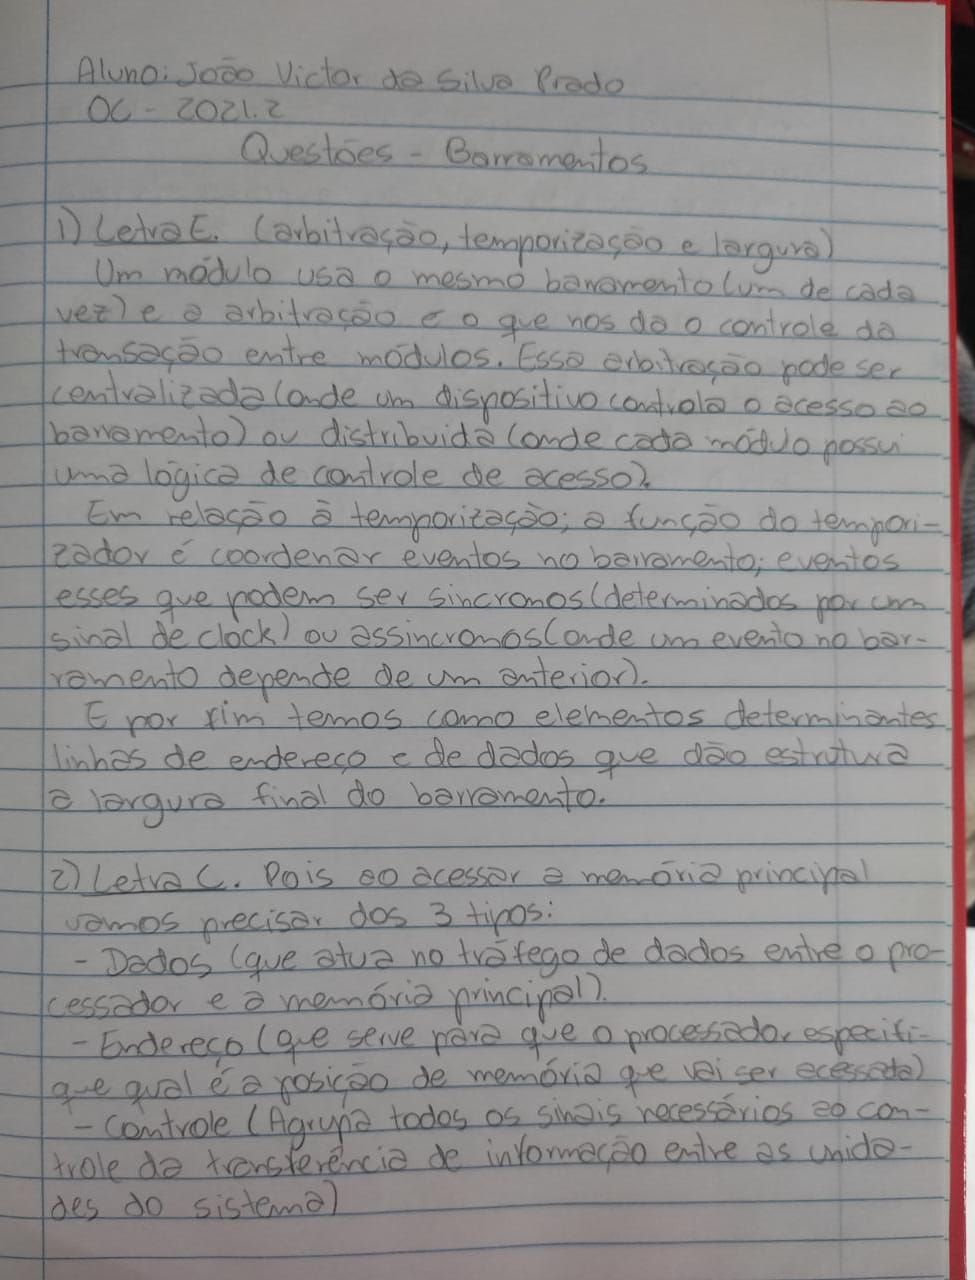 Aluno: João Victor da Silva Prado
OC - 2021.2
Questões - Barramentos
1) Letra E. (arbitração, temporização e largura)
Um módulo usa o mesmo barramento (um de cada
vez) e a arbitração é o que nos da o controle da
transação entre módulos. Essa arbitração pode ser
centralizada (onde um dispositivo controla o acesso ao
barramento) ou distribuída (onde cada módulo possui
uma lógica de controle de acesso).
Em relação à temporização; a função do tempori-
zador é coordenar eventos no barramento; eventos
esses que podem ser síncronos (determinados por um
sinal de clock) ou assíncronos (onde um evento no bar-
ramento depende de um anterior).
E por fim temos como elementos determinantes
linhas de endereço e de dados que dão estrutura
a largura final do barramento.
2) Letra C. Pois ao acessar a memória principal
vamos precisar dos 3 tipos:
- Dados (que atua no tráfego de dados entre o pro-
cessador e a memória principal).
- Endereço (que serve para que o processador especifi-
que qual é a posição de memória que vai ser acessada)
- Controle (Agrupa todos os sinais necessários ao con-
trole da transferência de informação entre as unida-
des do sistema)